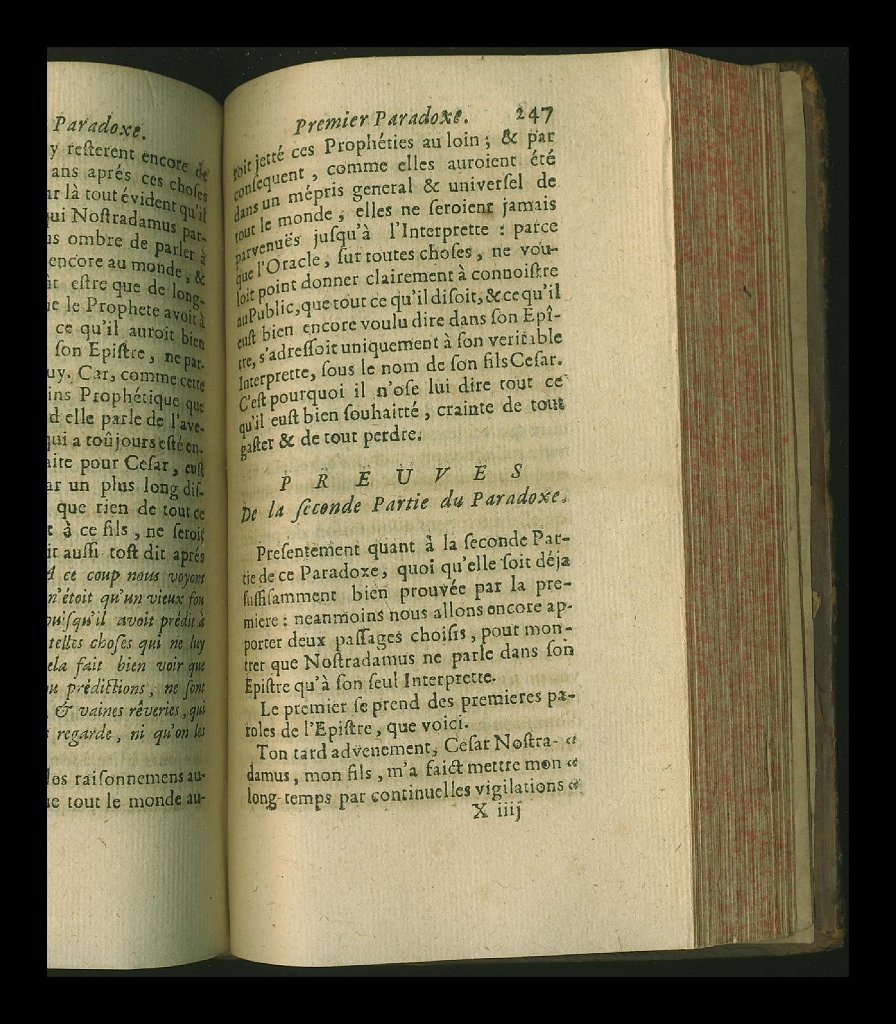 Paradoxe.
y resterent encore de
ans aprés ces choses
ar là tout évident qu'il
ui Nostradamus par-
us ombre de parler à
encore au monde, &
estre que de long-
e le Prophete avoit à
ce qu'il auroit bien
son Epistre, ne par-
uy. Car, comme cette
ins Prophétique que
d elle parle de l'ave-
ui a toûjours esté en-
aite pour Cesar, eust
ar un plus long dis-
que rien de tout ce
t à ce fils, ne seroit
it aussi tost dit aprés
A ce coup nous voyons
n'étoit qu'un vieux fou
puisqu'il avoit prédit à
telles choses qui ne luy
ela fait bien voir que
ou prédictions, ne sont
& vaines rêveries, qui
regarde, ni qu'on les
los raisonnemens au-
ue tout le monde au-
Premier Paradoxe. 247
soit jetté ces Prophéties au loin; & par
consequent, comme elles auroient été
dans un mépris general & universel de
tout le monde, elles ne seroient jamais
parvenuës jusqu'à l'Interprette: parce
que l'Oracle, sur toutes choses, ne vou-
loit point donner clairement à connoistre
au Public, que tout ce qu'il disoit, & ce qu'il
eust bien encore voulu dire dans son Epî-
tre, s'adressoit uniquement à son veritable
Interprette, sous le nom de son fils Cesar.
C'est pourquoi il n'ose lui dire tout ce
qu'il eust bien souhaitté, crainte de tout
gaster & de tout perdre.
PREUVES
De la seconde Partie du Paradoxe.
Presentement quant à la seconde Par-
tie de ce Paradoxe, quoi qu'elle soit déja
suffisamment bien prouvée par la pre-
miere: neanmoins nous allons encore ap-
porter deux passages choisis, pour mon-
trer que Nostradamus ne parle dans son
Epistre qu'à son seul Interprette.
Le premier se prend des premieres pa-
roles de l'Epistre, que voici.
Ton tard advenement, Cesar Nostra- “
damus, mon fils, m'a faict mettre mon “
long-temps par continuelles vigilations “
X iiij